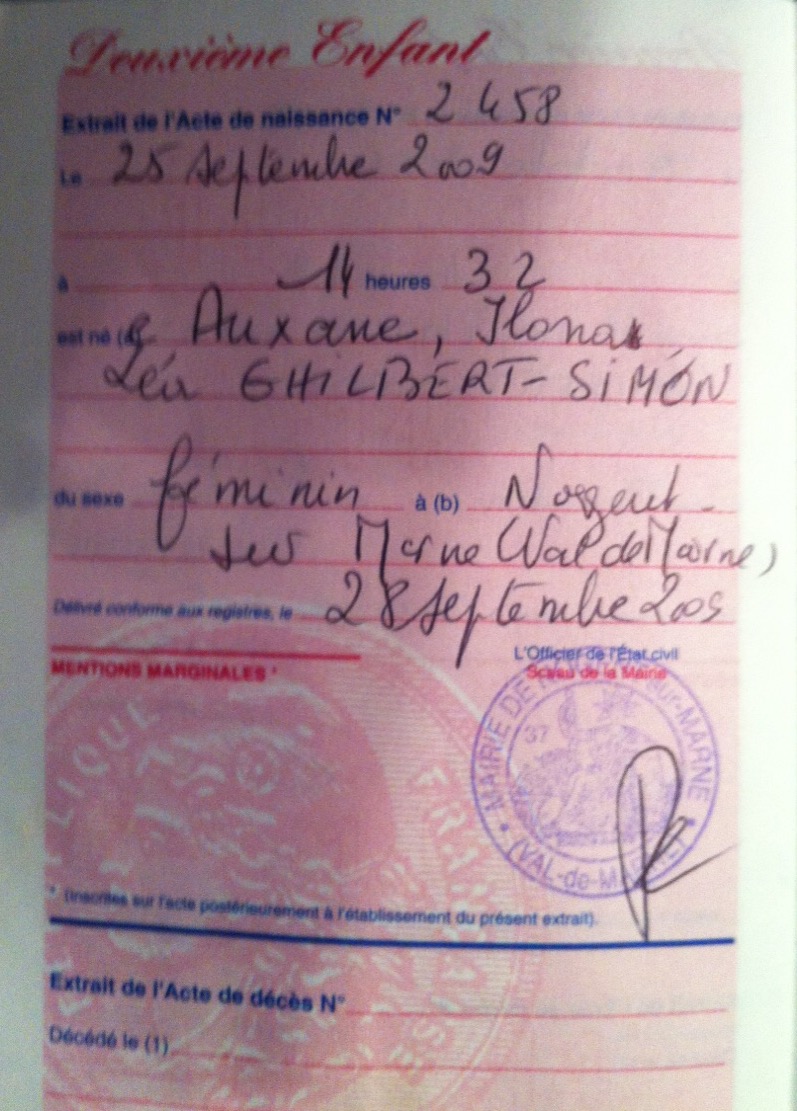 Deuxième Enfant
Extrait de l'Acte de naissance N° 2 458
Le 25 septembre 2009
à 14 heures 32
est né (a) e Auxane, Ilona,
Léa GHILIBERT-SIMON
du sexe féminin à (b) Nogent-
sur Marne (Val de Marne)
Délivré conforme aux registres, le 28 septembre 2009
L'Officier de l'État civil
MENTIONS MARGINALES *
Sceau de la Mairie
MAIRIE DE sur-MARNE
37
(VAL-de-MARNE)
* (Inscrites sur l'acte postérieurement à l'établissement du présent extrait).
Extrait de l'Acte de décès N°
Décédé le (1)